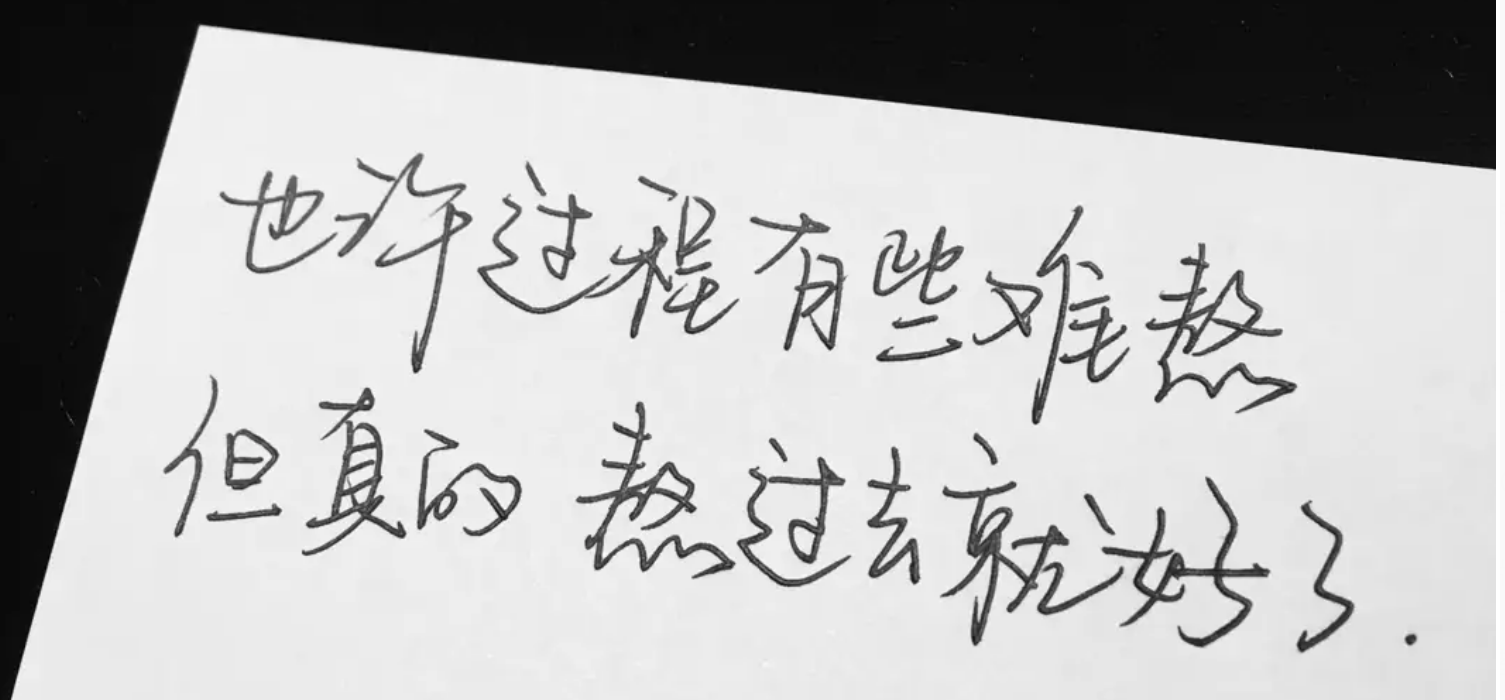 也许过程有些难熬
但真的熬过去就好了.